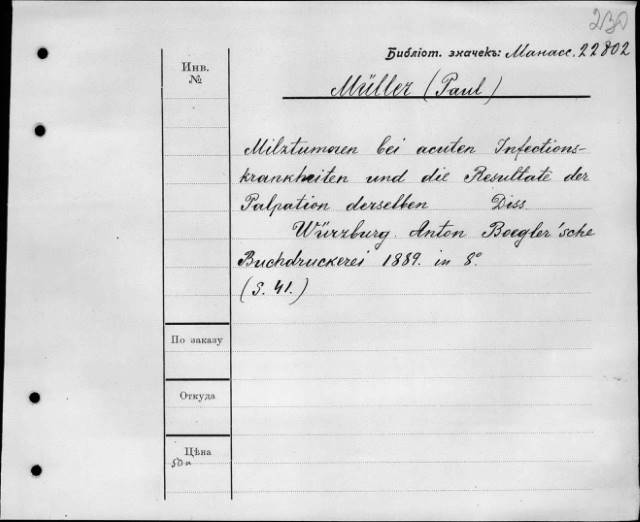 230
Библіот. значекъ: Манасс. 22802
Инв.
№
Müller (Paul)
Milztumoren bei acuten Infections-
krankheiten und die Resultate der
Palpation derselben Diss.
Würzburg. Anton Boegler'sche
Buchdruckerei 1889. in 8°
(S. 41.)
По заказу
Откуда
Цѣна
50п